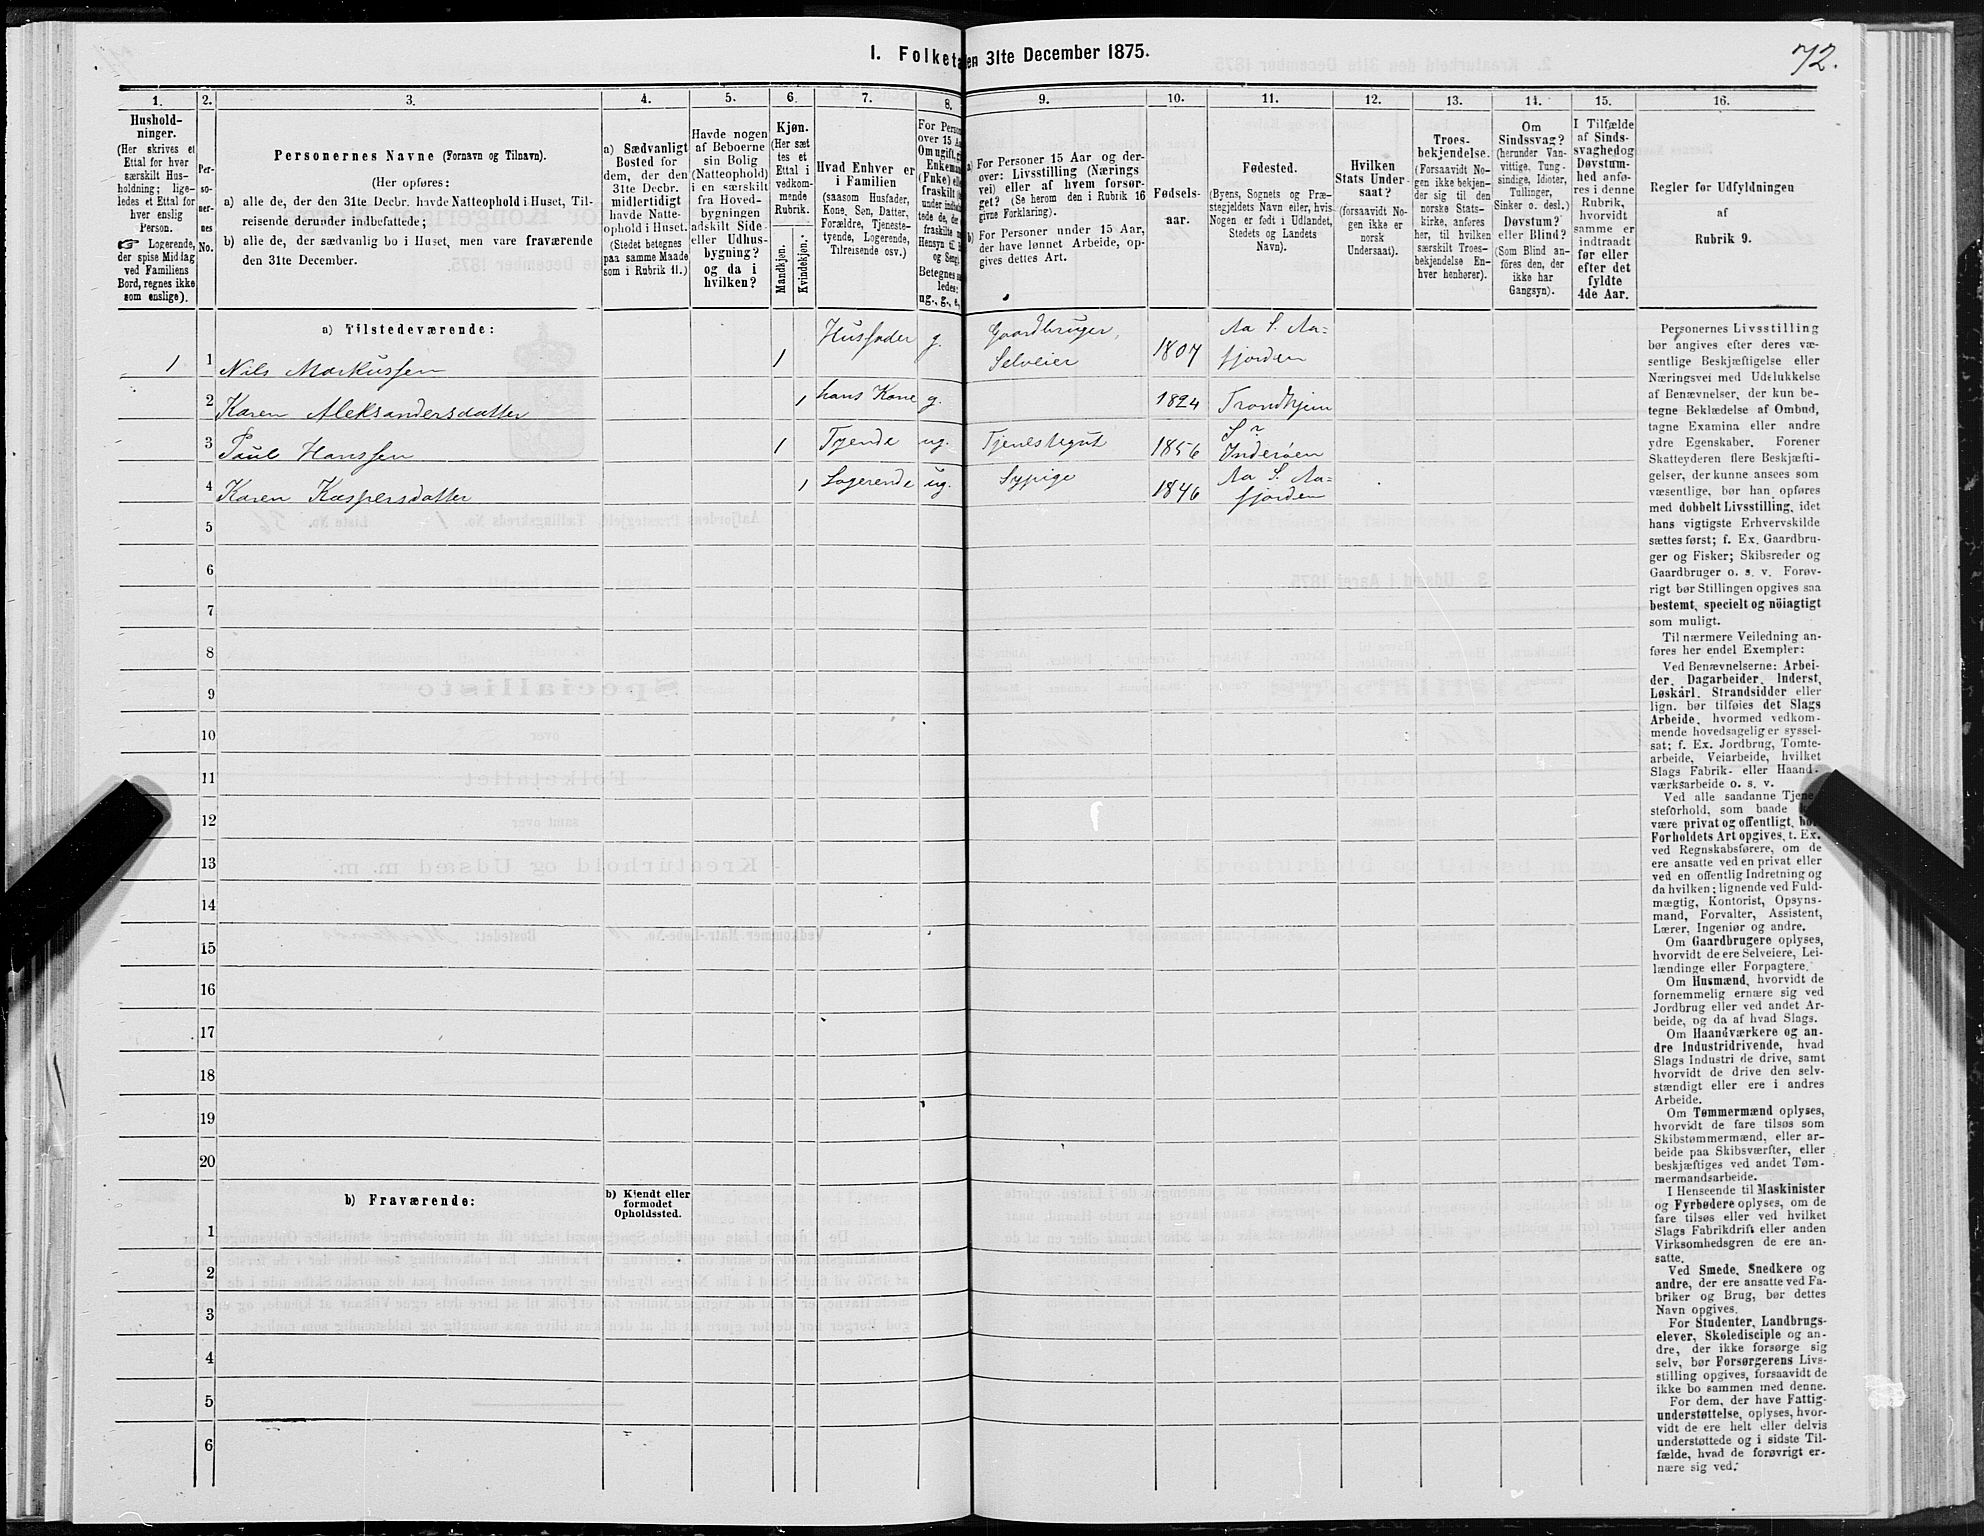 72.
I. Folketa en 31te December 1875.
1. 2. 3. 4. 5. 6. 7. 8. 9. 10. 11. 12. 13. 14. 15. 16.
Hushold-
ninger.
(Her skrives et
Ettal for hver
særskilt Hus-
holdning; lige-
ledes et Ettal for
hver enslig
Person.
☞ Logerende,
der spise Middag
ved Familiens
Bord, regnes ikke
som enslige).
Per-
so-
ner-
nes
No.
Personernes Navne (Fornavn og Tilnavn).
(Her opføres:
a) alle de, der den 31te Decbr. havde Natteophold i Huset, Til-
reisende derunder indbefattede;
b) alle de, der sædvanlig bo i Huset, men vare fraværende
den 31te December.
a) Sædvanligt
Bosted for
dem, der den
31te Decbr.
midlertidigt
havde Natte-
ophold i Huset.
(Stedet betegnes
paa samme Maade
som i Rubrik 11.)
Havde nogen
af Beboerne
sin Bolig
(Natteophold)
i en særskilt
fra Hoved-
bygningen
adskilt Side-
eller Udhus-
bygning?
og da i
hvilken?
Kjøn.
(Her sæt-
tes et
Ettal i
vedkom-
mende
Rubrik.
Mandkjøn.
Kvindekjøn.
Hvad Enhver er
i Familien
(saasom Husfader,
Kone, Søn, Datter,
Forældre, Tjeneste-
tyende, Logerende,
Tilreisende osv.)
For Person
over 15 Aa
Om ugift, g
Enkeman
(Fuke) elle
fraskilt
under indbe
tede de, der
fraskilte
Hensyn til
og Seng).
Betegnes
ledes:
ug., g., e.,
a) For Personer 15 Aar og der-
over: Livsstilling (Nærings
vei) eller af hvem forsør-
get? (Se herom den i Rubrik 16
givne Forklaring).
b) For Personer under 15 Aar,
der have lønnet Arbeide, op-
gives dettes Art.
Fødsels-
aar.
Fødested.
(Byens, Sognets og Præ-
stegjeldets Navn eller, hvis
Nogen er født i Udlandet,
Stedets og Landets
Navn).
Hvilken
Stats Under-
saat?
(forsaavidt No-
gen ikke er
norsk
Undersaat).
Troes-
bekjendelse.
(Forsaavidt No-
gen ikke bekjen-
der sig til den
norske Stats-
kirke, anføres
her, til hvilken
særskilt Troes-
bekjendelse En-
hver henhører).
Om
Sindssvag?
(herunder Van-
vittige, Tung-
sindige, Idioter,
Tullinger,
Sinker o. desl.)
Døvstum?
eller Blind?
(Som Blind an-
föres den, der
ikke har
Gangsyn).
I Tilfælde
af Sinds-
svaghed og
Døvstum-
hed anfø-
res i denne
Rubrik,
hvorvidt
samme er
indtraadt
før eller
efter det
fyldte
4de Aar.
Regler for Udfyldningen
af
Rubrik 9.
a) Tilstedeværende:
1 1 Nils Markussen 1 Husfader g. Gaardbruger, Selveier 1807 Aa S. Aa=fjorden
2 Karen Aleksandersdatter 1 hans Kone g. 1824 Trondhjem
3 Paul Hanssen 1 Tyende ug. Tjenestegut 1856 Inderøen
4 Karen Kaspersdatter 1 Logerende ug. Sypige 1846 Aa S. Aa=fjorden
5
6
7
8
9
10
11
12
13
14
15
16
17
18
19
20
b) Fraværende:
b) Kjendt eller
formodet
Opholdssted.
1
2
3
4
5
6
Personernes Livsstilling
bør angives efter deres væ-
sentlige Beskjæftigelse eller
Næringsvei med Udelukkelse
af Benævnelser, der kun be-
tegne Beklædelse af Ombud,
tagne Examina eller andre
ydre Egenskaber. Forener
Skatteyderen flere Beskjæfti-
gelser, der kunne ansees som
væsentlige, bør han opføres
med dobbelt Livsstilling, idet
hans vigtigste Erhvervskilde
sættes først; f. Ex. Gaardbru-
ger og Fisker; Skibsreder og
Gaardbruger o. s. v. Forøv-
rigt bør Stillingen opgives saa
bestemt, specielt og nöiagtigt
som muligt.
Til nærmere Veiledning an-
føres her endel Exempler:
Ved Benævnelserne: Arbei-
der, Dagarbeider, Inderst,
Løskarl, Strandsidder eller
lign. bør tilføies det Slags
Arbeide, hvormed vedkom-
mende hovedsagelig er syssel-
sat; f. Ex. Jordbrug, Tomte-
arbeide, Veiarbeide, hvilket
Slags Fabrik- eller Haand-
værksarbeide o. s. v.
Ved alle saadanne Tjene
steforhold, som baade
være privat og offentligt, bør
Forholdets Art opgives, t. Ex.
ved Regnskabsførere, om de
ere ansatte ved en privat eller
ved en offentlig Indretning og
da hvilken; lignende ved Fuld-
mægtig, Kontorist, Opsyns-
mand, Forvalter, Assistent,
Lærer, Ingeniør og andre.
Om Gaardbrugere oplyses,
hvorvidt de ere Selveiere, Lei-
lændinge eller Forpagtere.
Om Husmænd, hvorvidt de
fornemmelig ernære sig ved
Jordbrug eller ved andet Ar-
beide, og da af hvad Slags.
Om Haandværkere og an-
dre Industridrivende, hvad
Slags Industri de drive, samt
hvorvidt de drive den selv-
stændigt eller ere i andres
Arbeide.
Om Tømmermænd oplyses,
hvorvidt de fare tilsøs som
Skibstømmermænd, eller ar-
beide paa Skibsværfter, eller
beskjæftiges ved andet Tøm-
mermandsarbeide.
I Henseende til Maskinister
og Fyrbødere oplyses, om de
fare tilsøs eller ved hvilket
Slags Fabrikdrift eller anden
Virksomhedsgren de ere an-
satte.
Ved Smede, Snedkere og
andre, der ere ansatte ved Fa-
briker og Brug, bør dettes
Navn opgives.
For Studenter, Landbrugs-
elever, Skoledisciple og an-
dre, der ikke forsørge sig
selv, bør Forsørgerens Livs-
stilling opgives, forsaavidt de
ikke bo sammen med denne.
For dem, der have Fattig-
understøttelse, oplyses, hvor-
vidt de ere helt eller delvis
understøttede og i sidste Til-
fælde, hvad de forøvrigt er-
nære sig ved.